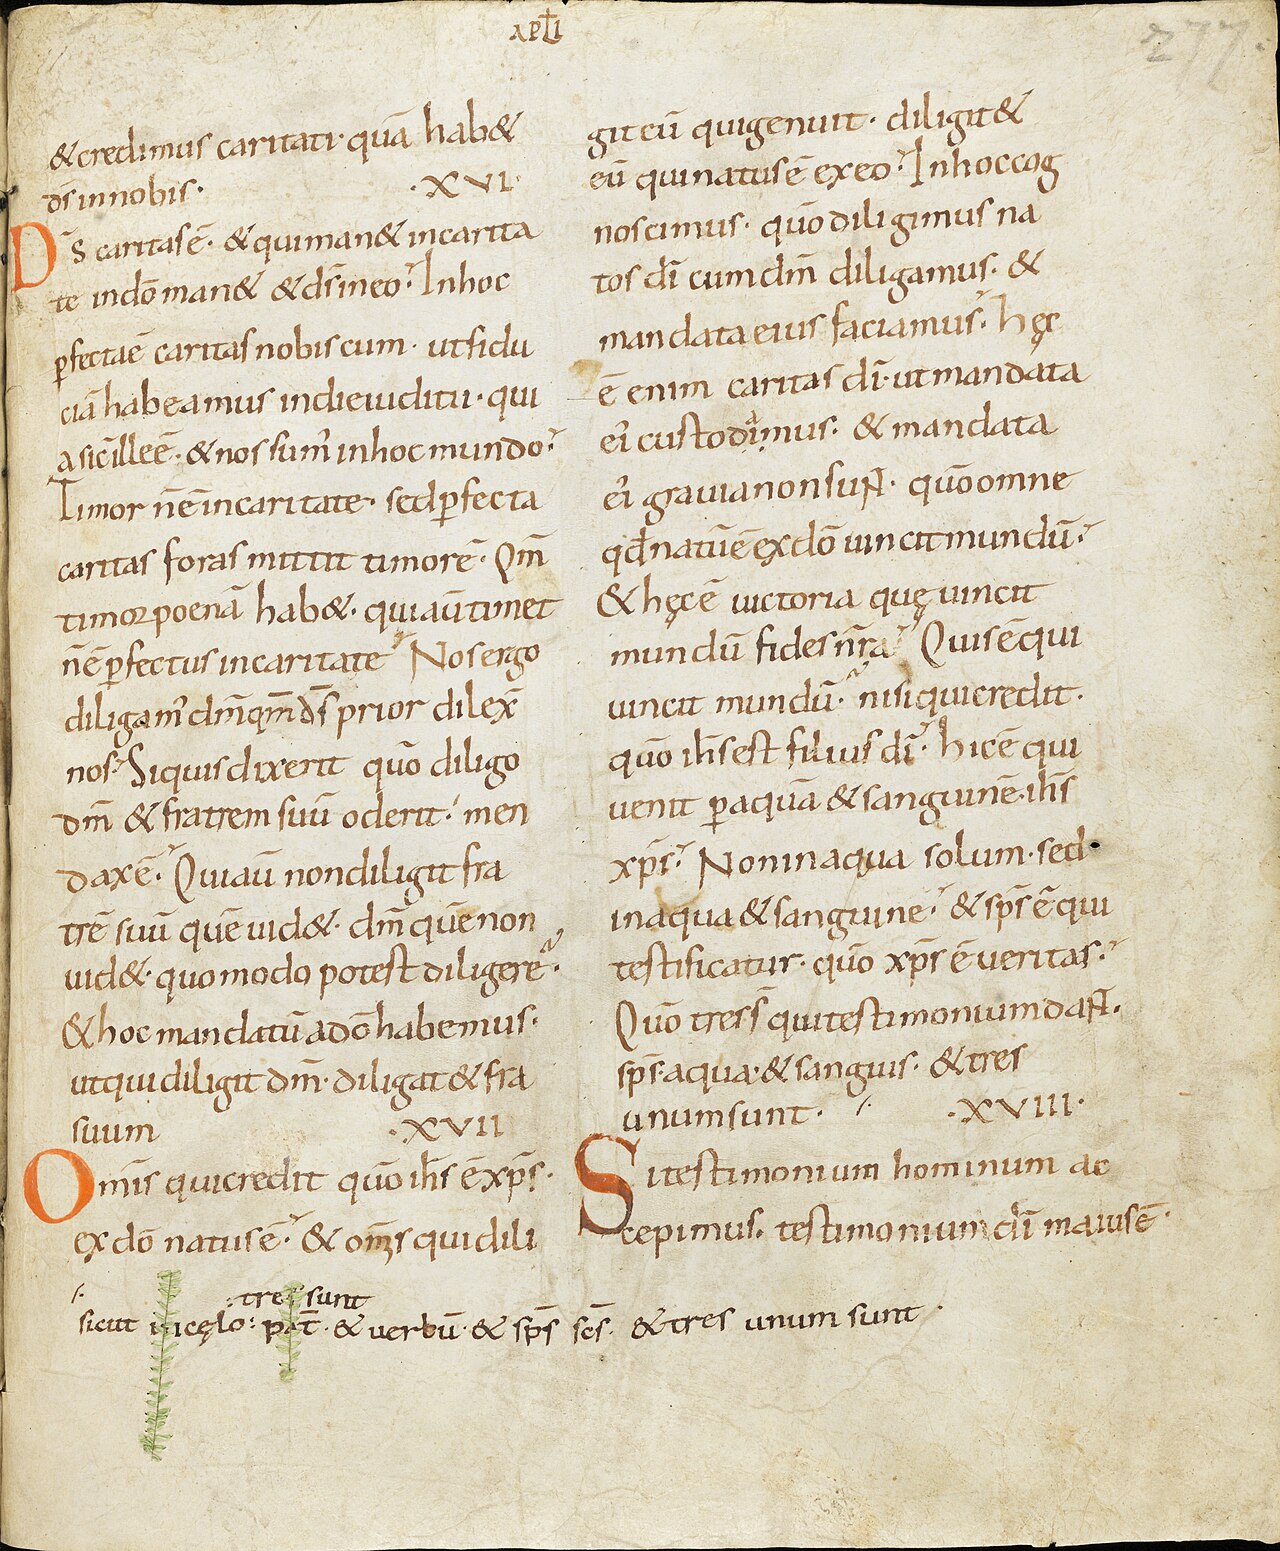 APLI
277.
& credimus caritati· quā hab&
ds̄ in nobis· ·XVI·
Ds̄ caritas ē· & qui man& in carita
te in dō man& & ds̄ in eo· In hoc
ꝑfecta ē caritas nobiscum· ut fidu
ciā habeamus in die iudicii· qui
a sic̄ ille ē· & nos sum' in hoc mundo·
Timor n̄ ē in caritate· sed ꝑfecta
caritas foras mittit timorē· Qm̄
timor poenā hab&· qui aū timet
n̄ ē ꝑfectus in caritate Nos ergo
diligam' dm̄ qm̄ ds̄ prior dilex̄
nos· Siquis dixerit quō diligo
dm̄ & fratrem suū oderit· men
dax ē· Qui aū non diligit fra
trē suū quē uid&· dm̄ quē non
uid&· quomodo potest diligere·
& hoc mandatū a dō habemus·
ut qui diligit dm̄· diligat & fra
suum ·XVII
Om̄is qui credit quō ih̄s ē xp̄s·
ex dō natus ē· & om̄s qui dili
git eū qui genuit· diligit &
eū qui natus ē ex eo· In hoc cog
noscimus· quō diligimus na
tos dī cum dm̄ diligamus· &
mandata eius faciamus· hęc
ē enim caritas dī· ut mandata
ei' custodiamus· & mandata
ei' grauia non sunt· quō omne
qd̄ natū ē ex dō uincit mundū·
& hęc ē uictoria quę uincit
mundū fides nr̄a Quis ē qui
uincit mundū· nisi qui credit·
quō ih̄s est filius dī· hic ē qui
uenit ꝑ aquā & sanguinē· ih̄s
xp̄s· Non in aqua solum· sed·
in aqua & sanguine· & sp̄s ē qui
testificatur· quō xp̄s ē ueritas·
Quō tres s̄ qui testimonium dant·
sp̄s· aqua· & sanguis· & tres
unum sunt· ⁒ ·XVIII·
Si testimonium hominum ac
cepimus· testimonium dī maius ē·
⁒ tres sunt
sicut in cęlo: pat̄· & uerbū· & sp̄s sc̄s· & tres unum sunt·